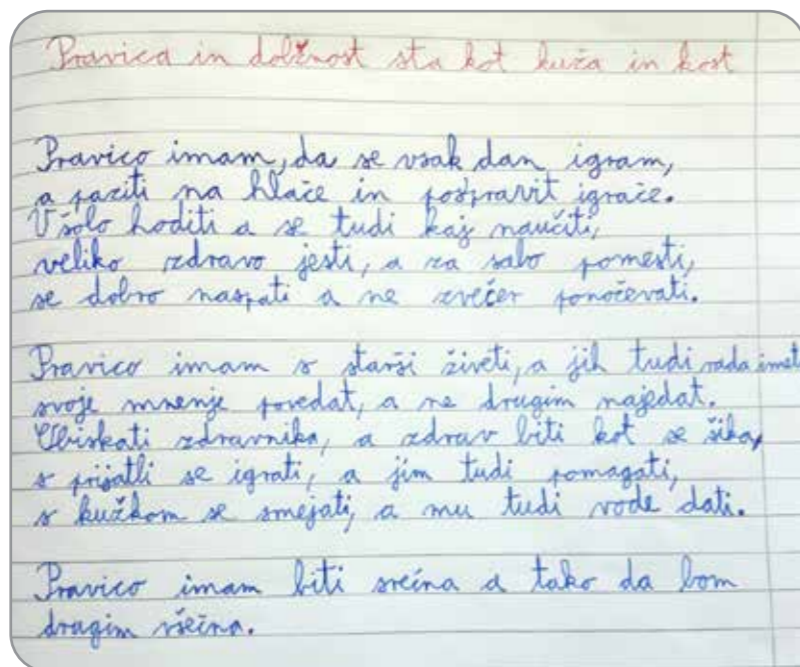 Pravica in dolžnost sta kot kuža in kost
Pravico imam, da se vsak dan igram,
a paziti na hlače in pospravit igrače.
V šolo hoditi a se tudi kaj naučiti,
veliko zdravo jesti, a za sabo pomesti,
se dobro naspati a ne zvečer ponočevati.
Pravico imam s starši živeti, a jih tudi rada imeti
svoje mnenje povedat, a ne drugim najedat.
Obiskati zdravnika, a zdrav biti kot se šika,
s prijatli se igrati, a jim tudi pomagati,
s kužkom se smejati, a mu tudi vode dati.
Pravico imam biti srečna a tako da bom
drugim všečna.